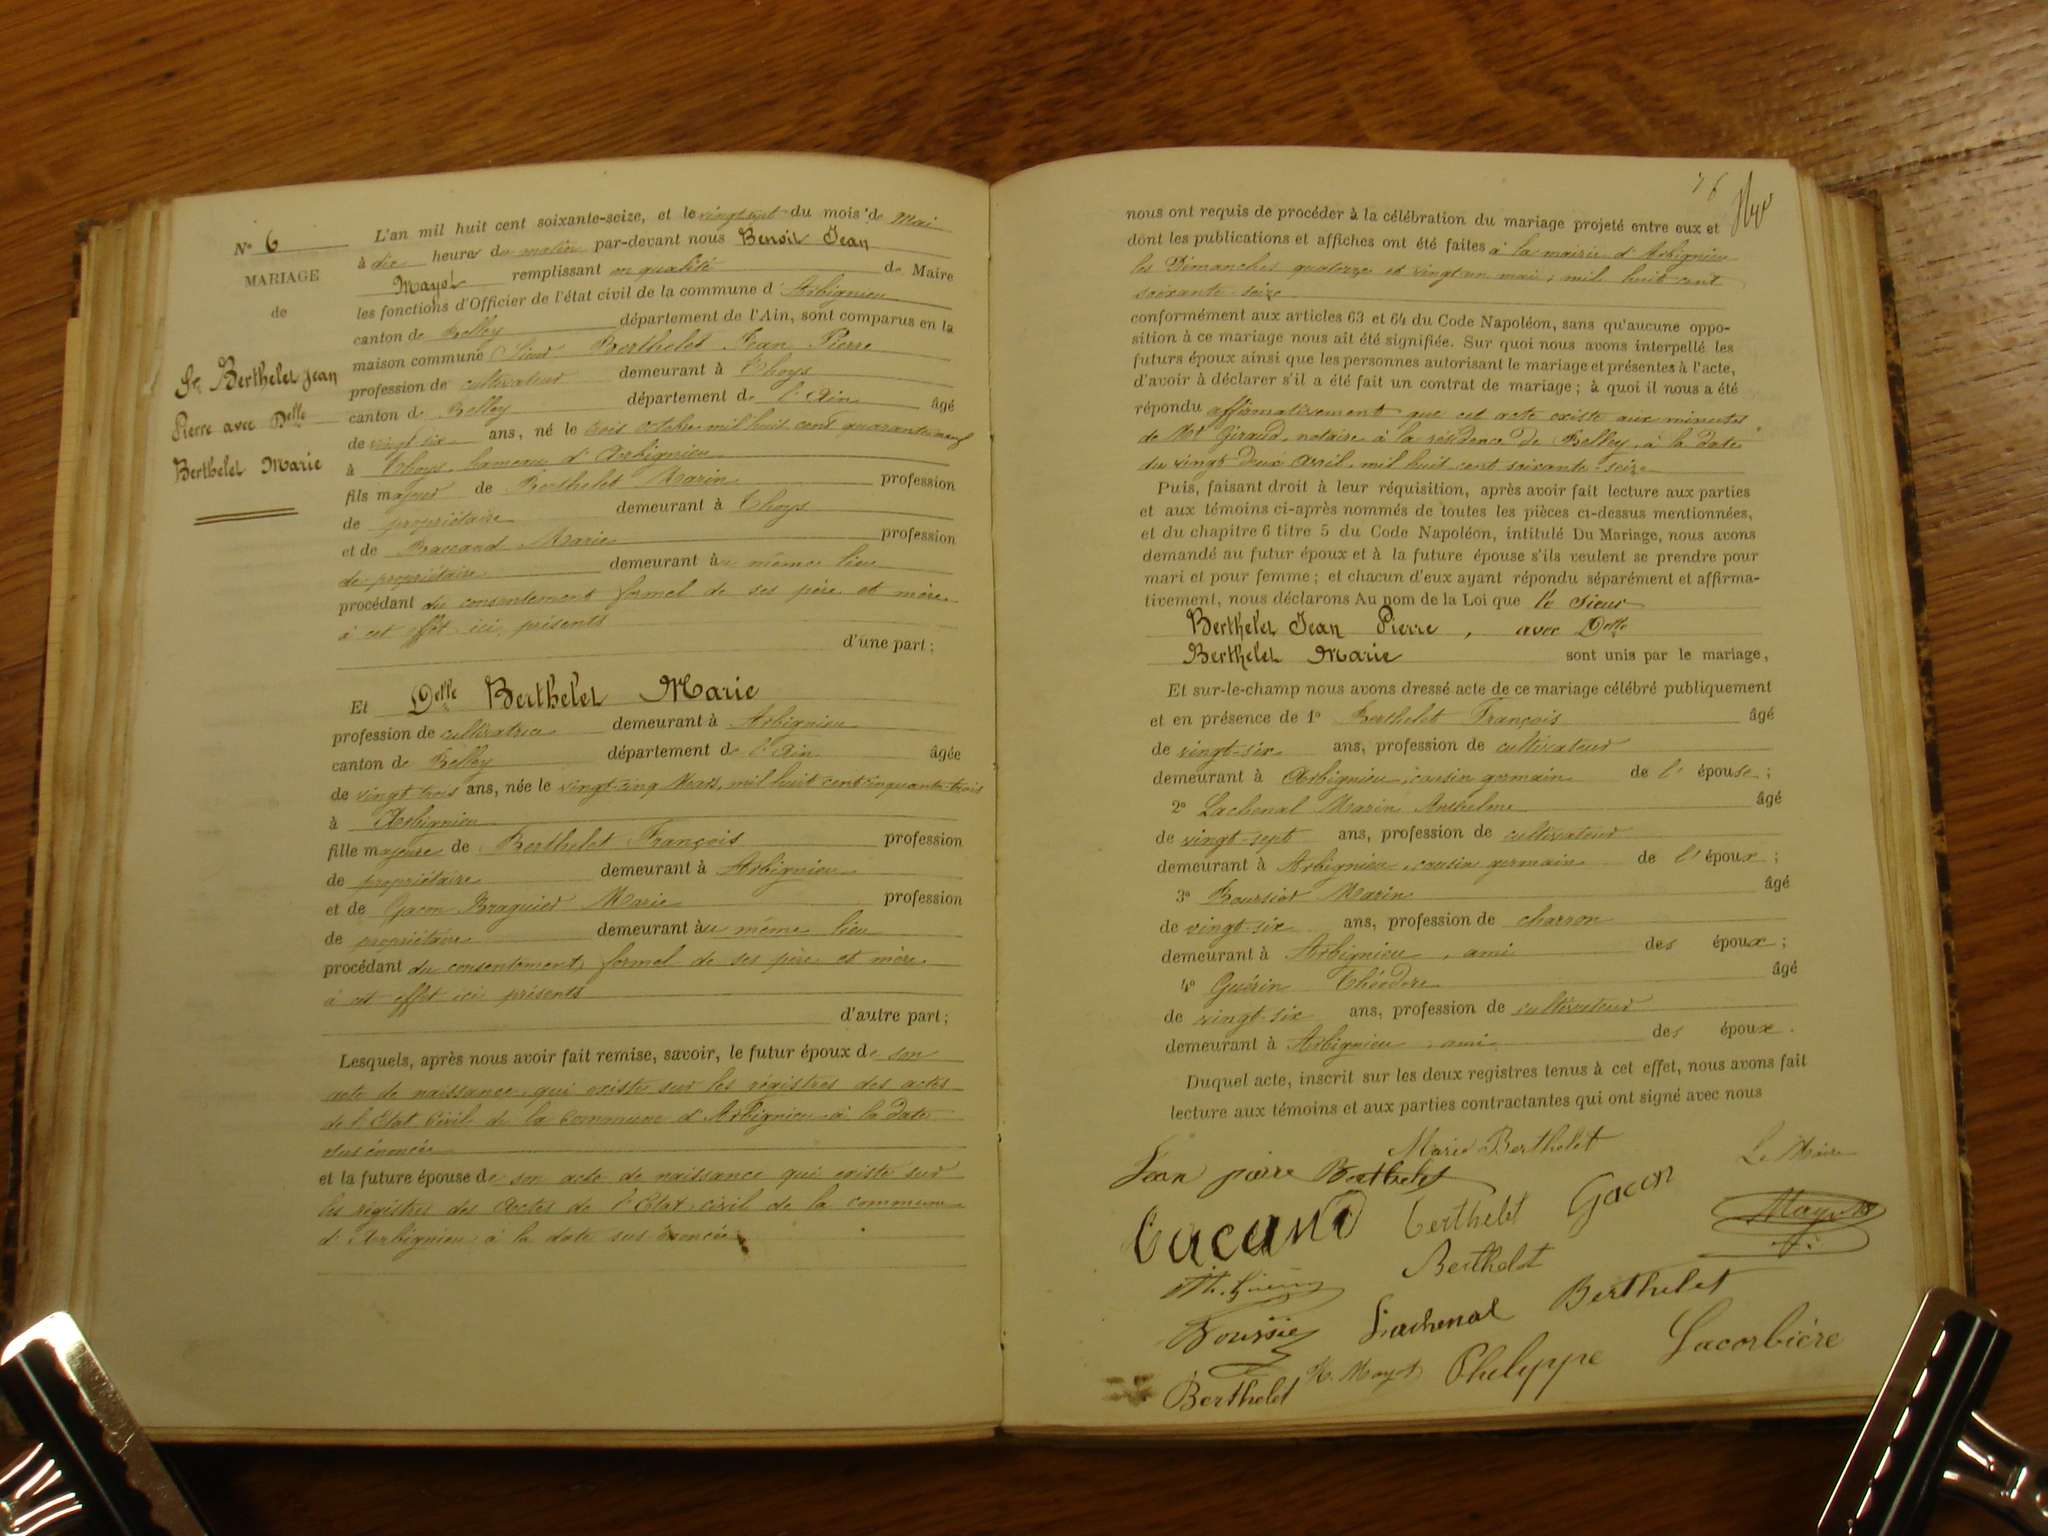 N° 6
MARIAGE
de
Sr Berthelet Jean
Pierre avec Delle
Berthelet Marie
L'an mil huit cent soixante-seize, et le vingt sept du mois de Mai
à dix heures du matin par-devant nous Benoît Jean
Mayot remplissant en qualité de Maire
les fonctions d'Officier de l'état civil de la commune d'Arbignieu
canton de Belley département de l'Ain, sont comparus en la
maison commune Sieur Berthelet Jean Pierre
profession de cultivateur demeurant à Thoys
canton de Belley département de l'Ain âgé
de vingt six ans, né le trois octobre mil huit cent quarante neuf
à Thoys, hameau d'Arbignieu
fils majeur de Berthelet Marin profession
de propriétaire demeurant à Thoys
et de Marie profession
de propriétaire demeurant au même lieu
procédant du consentement formel de ses père et mère
à cet effet ici présents
d'une part;
Et Delle Berthelet Marie
profession de cultivatrice demeurant à Arbignieu
canton de Belley département de l'Ain âgée
de vingt-trois ans, née le vingt-cinq Mars, mil huit cent cinquante-trois
à Arbignieu
fille majeure de Berthelet François profession
de propriétaire demeurant à Arbignieu
et de Gacon Braquier Marie profession
de propriétaire demeurant au même lieu
procédant du consentement formel de ses père et mère
à cet effet ici présents
d'autre part;
Lesquels, après nous avoir fait remise, savoir, le futur époux de son
acte de naissance, qui existe sur les régistres des actes
de l'Etat Civil de la commune d'Arbignieu à la date
sus énoncée
et la future épouse de son acte de naissance qui existe sur
les régistres des Actes de l'Etat civil de la commune
d'Arbignieu à la date sus énoncée
76
nous ont requis de procéder à la célébration du mariage projeté entre eux et
dont les publications et affiches ont été faites à la mairie d'Arbignieu
les Dimanches quatorze et vingt un mai, mil huit cent
soixante-seize
conformément aux articles 63 et 64 du Code Napoléon, sans qu'aucune oppo-
sition à ce mariage nous ait été signifiée. Sur quoi nous avons interpellé les
futurs époux ainsi que les personnes autorisant le mariage et présentes à l'acte,
d'avoir à déclarer s'il a été fait un contrat de mariage; à quoi il nous a été
répondu affirmativement que cet acte existe aux minutes
de Mt Giraud, notaire à la résidence de Belley, à la date
du vingt deux avril, mil huit cent soixante-seize
Puis, faisant droit à leur réquisition, après avoir fait lecture aux parties
et aux témoins ci-après nommés de toutes les pièces ci-dessus mentionnées,
et du chapitre 6 titre 5 du Code Napoléon, intitulé Du Mariage, nous avons
demandé au futur époux et à la future épouse s'ils veulent se prendre pour
mari et pour femme; et chacun d'eux ayant répondu séparément et affirma-
tivement, nous déclarons Au nom de la Loi que le Sieur
Berthelet Jean Pierre, avec Delle
Berthelet Marie sont unis par le mariage,
Et sur-le-champ nous avons dressé acte de ce mariage célébré publiquement
et en présence de 1° Berthelet François âgé
de vingt-six ans, profession de cultivateur
demeurant à Arbignieu, cousin germain de l'épouse;
2° Lachenal Marin Anthelme âgé
de vingt-sept ans, profession de cultivateur
demeurant à Arbignieu, cousin germain de l'époux;
3° Marin âgé
de vingt-six ans, profession de charron
demeurant à Arbignieu, ami des époux;
4° Guérin Théodore âgé
de vingt-six ans, profession de cultivateur
demeurant à Arbignieu, ami des époux.
Duquel acte, inscrit sur les deux registres tenus à cet effet, nous avons fait
lecture aux témoins et aux parties contractantes qui ont signé avec nous
Marie Berthelet
Le Maire
Jean pierre Berthelet
berthelet Gacon
Mayot
Berthelet
Lachenal Berthelet
Berthelet Phelyppe Lacorbière